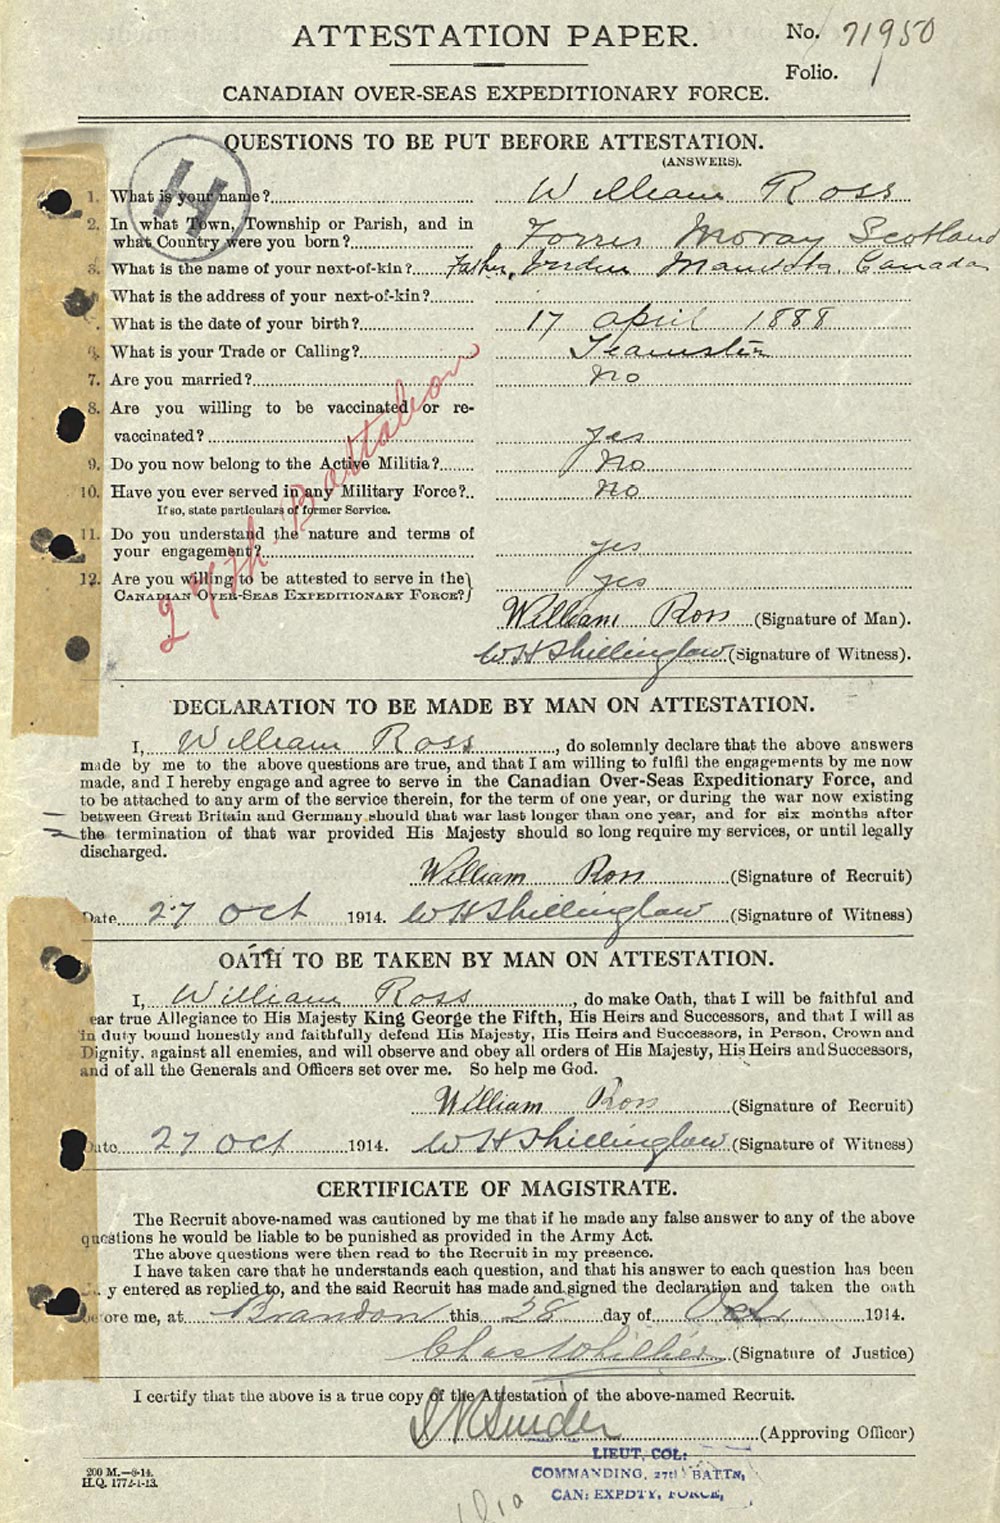 ATTESTATION PAPER.
No. 71950
Folio.
CANADIAN OVER-SEAS EXPEDITIONARY FORCE.
QUESTIONS TO BE PUT BEFORE ATTESTATION.
(ANSWERS).
H
1. What is your name? William Ross
2. In what Town, Township or Parish, and in
what Country were you born? Forres Moray Scotland
3. What is the name of your next-of-kin? Father, Virden Manitoba. Canada
What is the address of your next-of-kin?
What is the date of your birth? 17 April 1888
6. What is your Trade or Calling? Teamster
7. Are you married? No
8. Are you willing to be vaccinated or re-
vaccinated? yes
9. Do you now belong to the Active Militia? No
10. Have you ever served in any Military Force? No
If so, state particulars of former Service.
11. Do you understand the nature and terms of
your engagement? yes
12. Are you willing to be attested to serve in the
CANADIAN OVER-SEAS EXPEDITIONARY FORCE? yes
27th Battalion
William Ross (Signature of Man).
W H Shillinglaw (Signature of Witness).
DECLARATION TO BE MADE BY MAN ON ATTESTATION.
I, William Ross, do solemnly declare that the above answers
made by me to the above questions are true, and that I am willing to fulfil the engagements by me now
made, and I hereby engage and agree to serve in the Canadian Over-Seas Expeditionary Force, and
to be attached to any arm of the service therein, for the term of one year, or during the war now existing
between Great Britain and Germany should that war last longer than one year, and for six months after
the termination of that war provided His Majesty should so long require my services, or until legally
discharged.
William Ross (Signature of Recruit)
Date 27 Oct 1914. W H Shillinglaw (Signature of Witness)
OATH TO BE TAKEN BY MAN ON ATTESTATION.
I, William Ross, do make Oath, that I will be faithful and
ear true Allegiance to His Majesty King George the Fifth, His Heirs and Successors, and that I will as
in duty bound honestly and faithfully defend His Majesty, His Heirs and Successors, in Person, Crown and
Dignity, against all enemies, and will observe and obey all orders of His Majesty, His Heirs and Successors,
and of all the Generals and Officers set over me. So help me God.
William Ross (Signature of Recruit)
Date 27 Oct 1914. W H Shillinglaw (Signature of Witness)
CERTIFICATE OF MAGISTRATE.
The Recruit above-named was cautioned by me that if he made any false answer to any of the above
questions he would be liable to be punished as provided in the Army Act.
The above questions were then read to the Recruit in my presence.
I have taken care that he understands each question, and that his answer to each question has been
y entered as replied to, and the said Recruit has made and signed the declaration and taken the oath
before me, at Brandon this 28 day of Oct 1914.
Chas (Signature of Justice)
I certify that the above is a true copy of the Attestation of the above-named Recruit.
(Approving Officer)
LIEUT. COL:
COMMANDING, 27TH BATTN,
CAN: EXPDTY, FORCE,
200 M.—8-14.
H.Q. 1772-1-13.